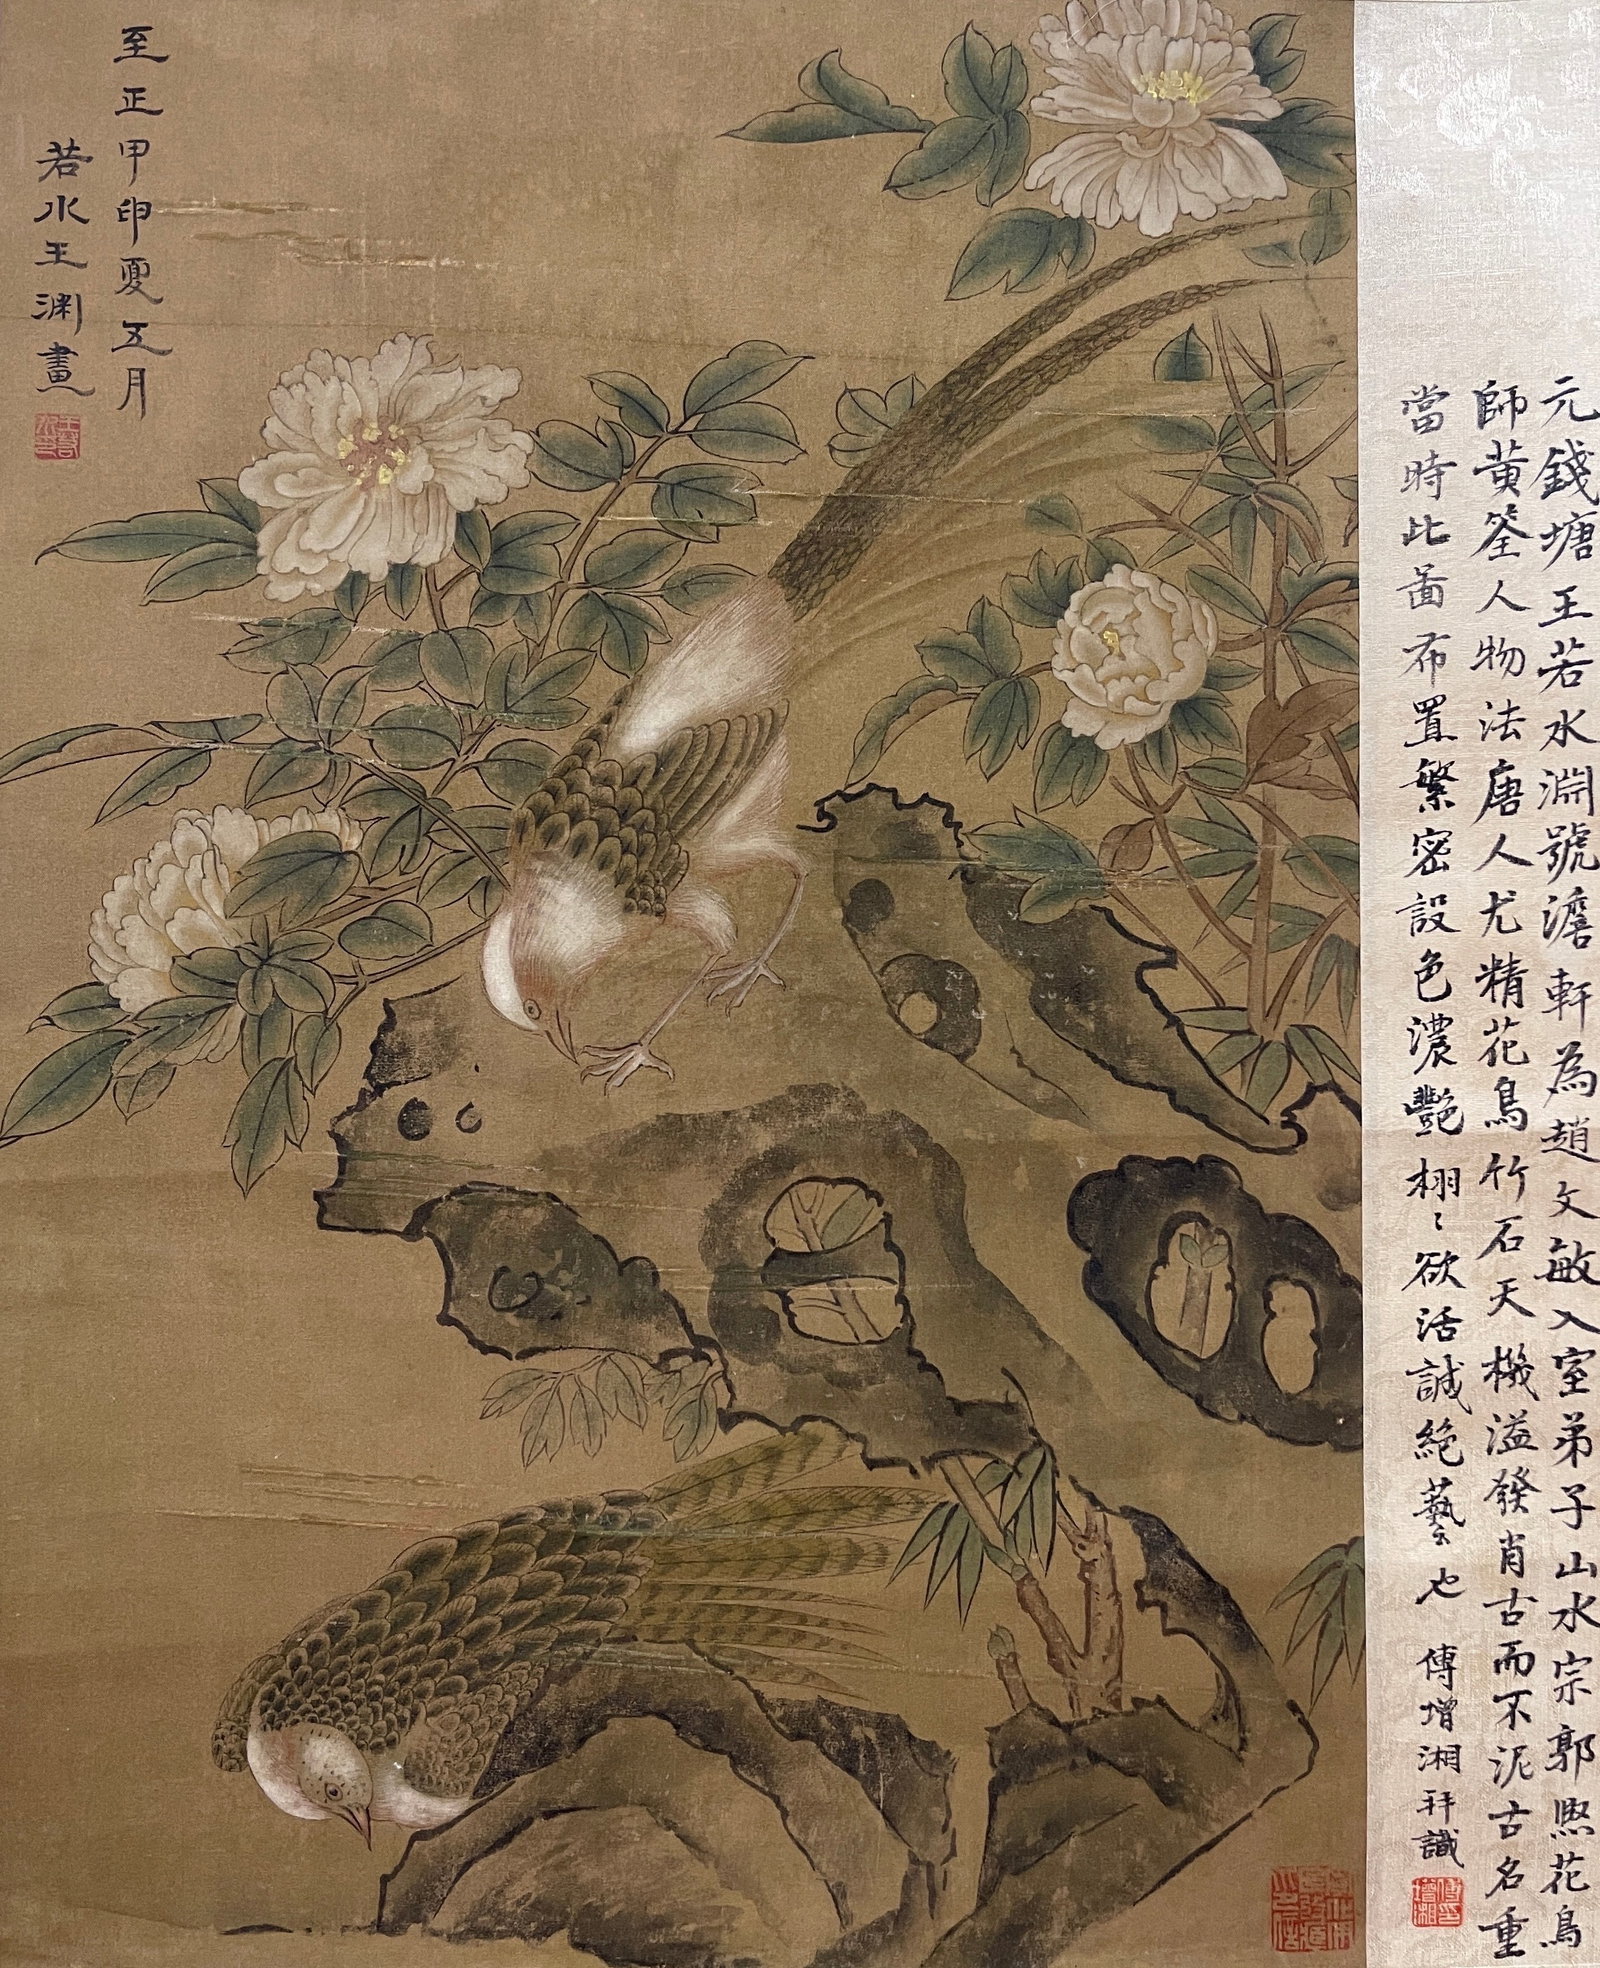 至正甲申夏五月
若水王渊畫
元錢塘王若水淵號澹軒為趙文敏入室弟子山水宗郭熙花鳥
師黄筌人物法唐人尤精花鳥竹石天機溢發肖古而不泥古名重
當時此啚布置繁密設色濃艷栩〻欲活誠絶藝也 傅增湘拜識
傅增湘印